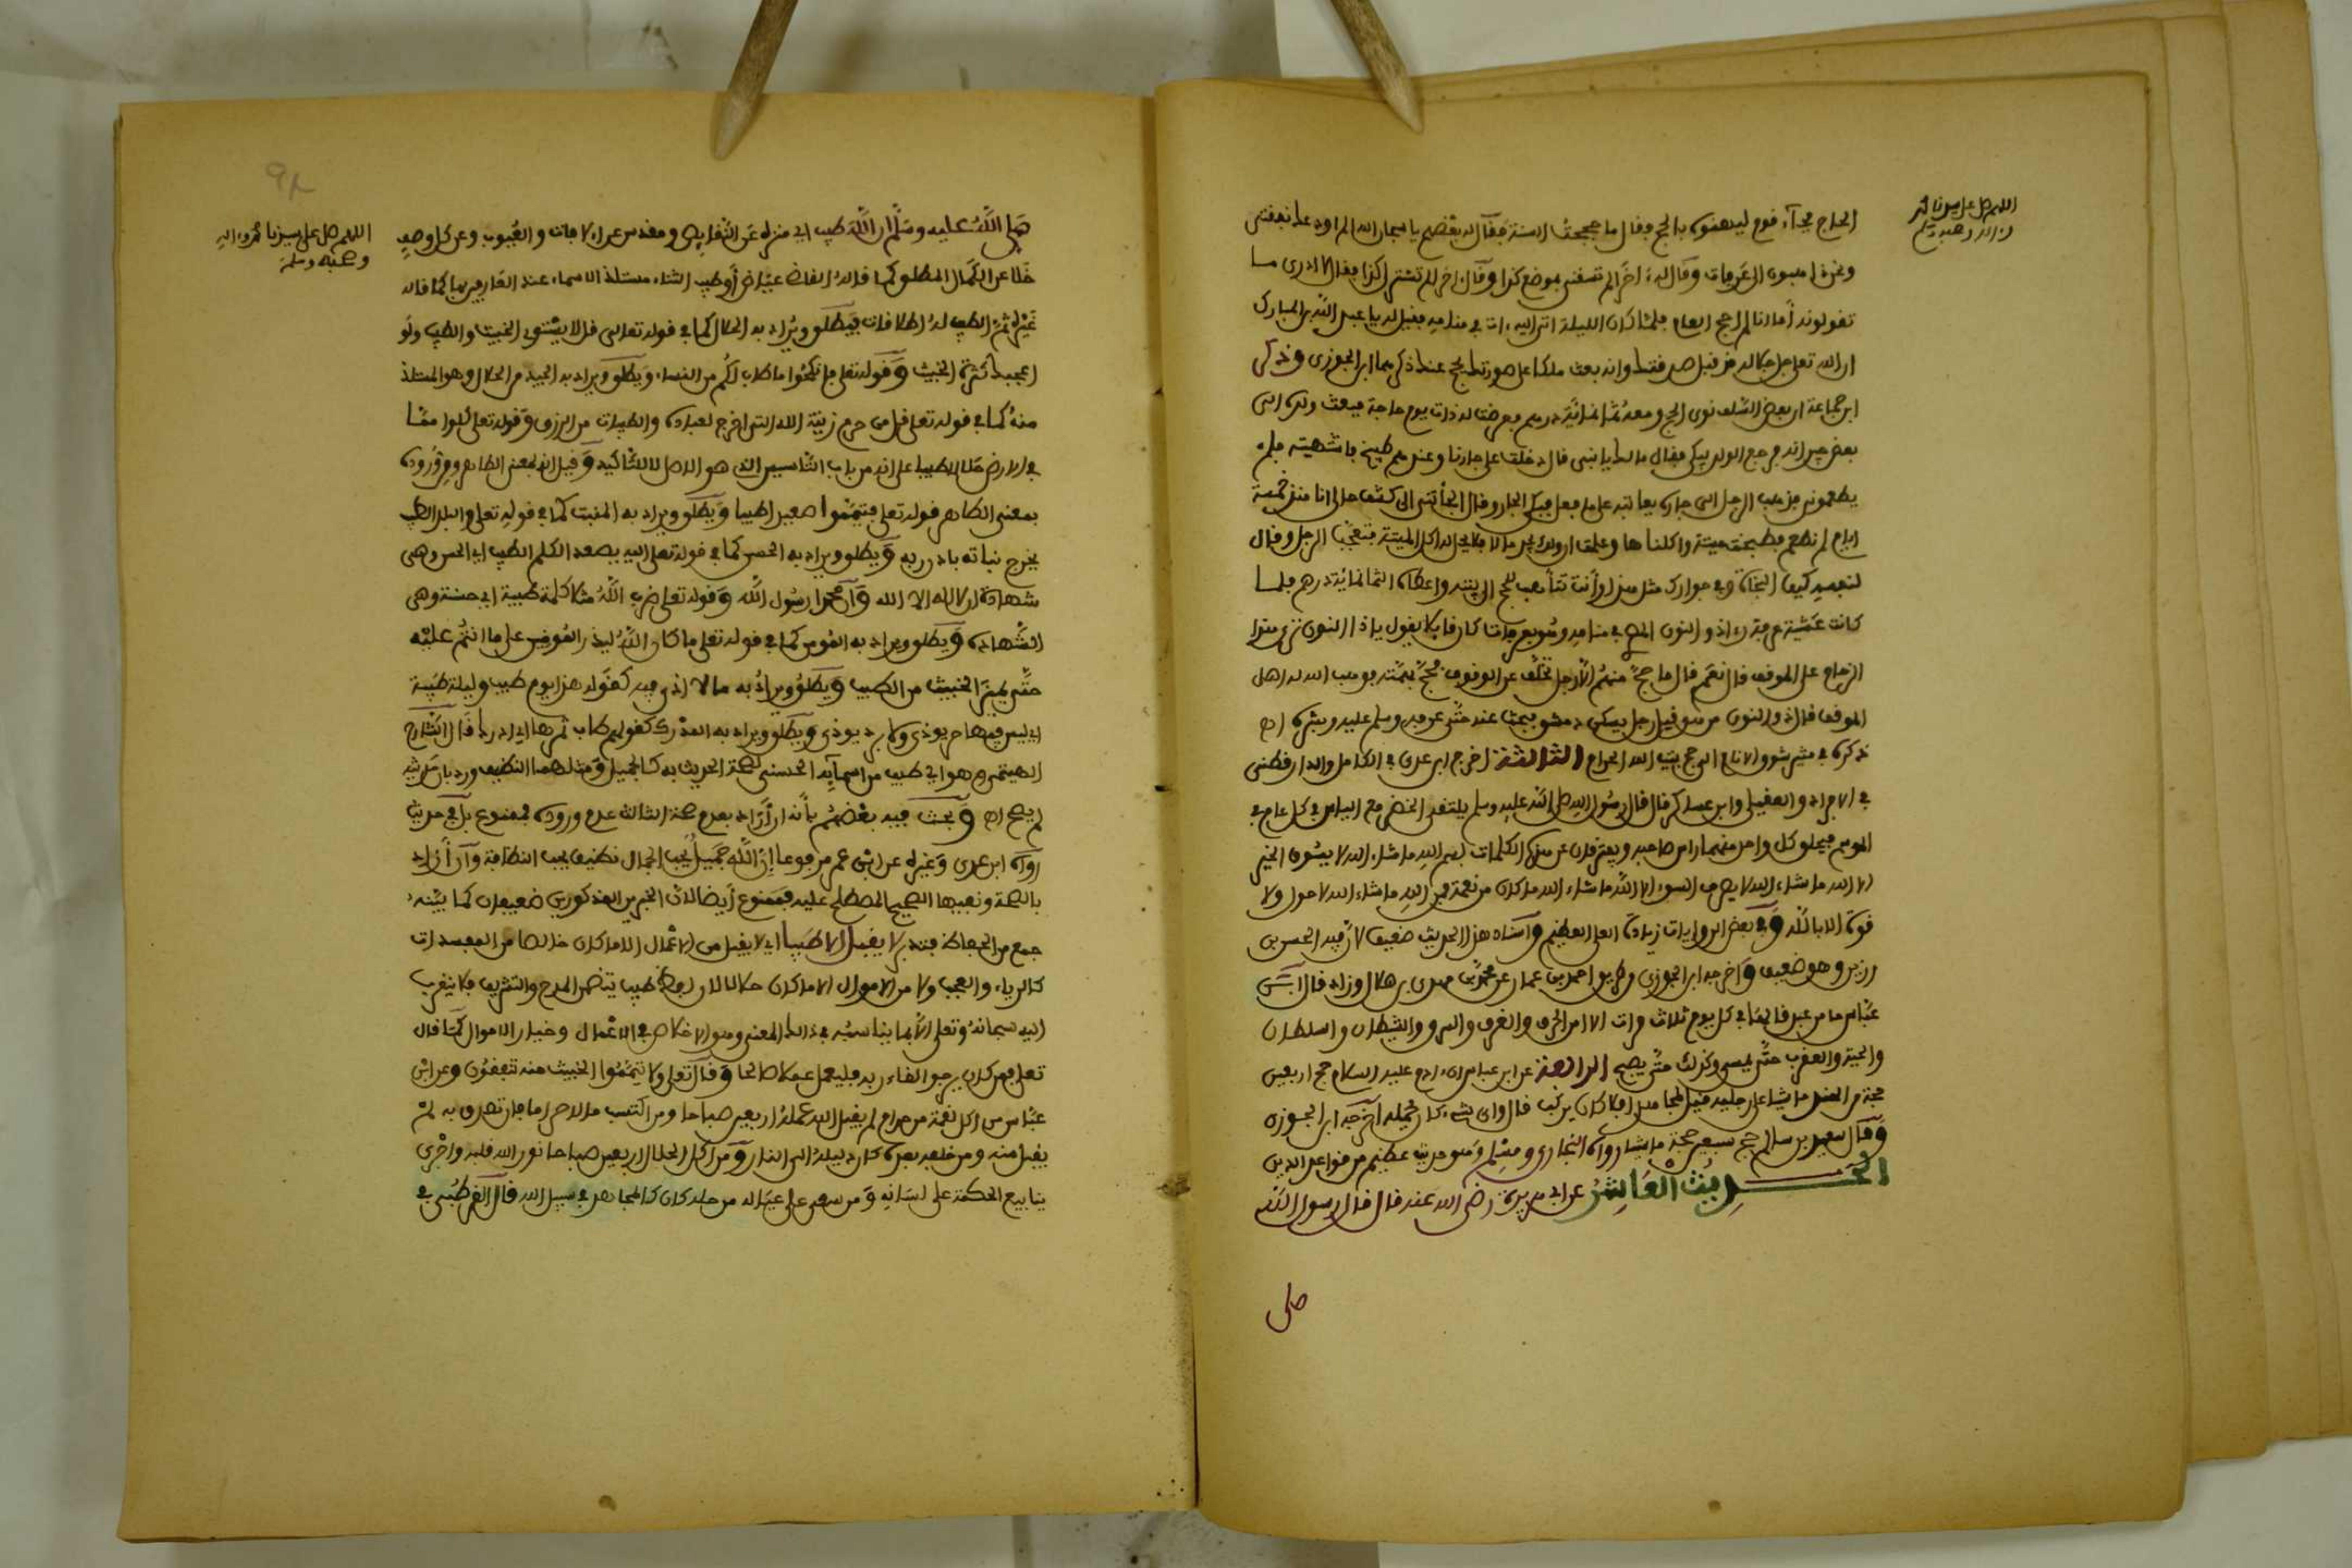 اللهم صل على سيدنا محمد
وءاله وصحبه وسلم
الحاج فجاءه قوم ليهنوه بالحج وقال ما حججت السنة فقال له بعضهم يا سبحان الله الم اودعك نفقتى
ونحن ذاهبون الى عرفات وقال له ءاخر الم تسقنى بموضع كذا وقال ءاخر الم تشتر لى كذا فقال لا ادرى ما
تقولون أما انا لم احج العام فلما كان الليلة اتى اليه ءات فى منامه فقيل له يا عبد الله بن المبارك
ان الله تعلى جل جلاله قد قبل صدقتك وانه بعث ملكا على صورتك يحج عنك ذكرهما ابن الجوزى وذكر
ابن جماعة ان بعض السلف نوى الحج ومعه ثمانمائة درهم فعرضت له ذات يوم حاجة فبعث ولده الى
بعض جيرانه فرجع الولد يبكى فقال مالك يا بنى قال دخلت على جارنا وعندهم طبيخ فاشتهيته فلم
يطعمونى فذهب الرجل الى جاره يعاتبه على ما فعل فبكى الجار وقال الجأتنى الى كشف حالى انا منذ خمسة
ايام لم نطعم فطبخت ميتة واكلناها وعلمت ان ولدك يجد مالا فلا يحل له اكل الميتة فتعجب الرجل وقال
لنفسه كيف النجاة وفى جوارك مثل هذا وأنت تتأهب للحج الى بيته واعطاه الثمانمائة درهم فلما
كانت عشية عرفة رءا ذو النون المصرى فى منامه وهو بعرفات كان قائلا يقول يا ذا النون ترى هذا
الزحام على الموقف قال نعم قال ما حج منهم الا رجل تخلف عن الوقوف فحج بهمته فوهب الله له اهل
الموقف قال ذو النون من هو قيل رجل يسكن دمشق فبحث عنه حتى عرفه وسلم عليه وبشره اه
ذكره فى مثير شوق الانام الى حج بيت الله الحرام الثالثة اخرج ابن عدى فى الكامل والدارقطنى
فى الافراد والعقيلى وابن عساكر قال قال رسول الله صلى الله عليه وسلم يلتقى الخضر مع الياس فى كل عام فى
الموسم فيحلق كل واحد منهما راس صاحبه ويفترقان عن هذه الكلمات بسم الله ما شاء الله لا يسوق الخير
الا الله ما شاء الله لا يصرف السوء الا الله ما شاء الله ما كان من نعمة فمن الله ما شاء الله لا حول ولا
قوة الا بالله وفى بعض الروايات زيادة العلى العظيم واسناد هذا الحديث ضعيف لان فيه الحسن بن
رزين وهو ضعيف واخرجه ابن الجوزى من طريق احمد بن عمار عن محمد بن مهدى بن هلال وزاد قال ابن
عباس ما من عبد قالها فى كل يوم ثلاث مرات الا امن الحرق والغرق والسرق والشيطان والسلطان
والحية والعقرب حتى يمسى وكذلك حتى يصبح الرابعة عن ابن عباس ان ءادم عليه السلام حج اربعين
حجة من الهند ماشيا على رجليه قيل لمجاهد افلا كان يركب قال واى شىء كان يحمله اخرجه ابن الجوزى
وقال سعيد بن سالم حج سبعين حجة ماشيا رواه البخارى ومسلم وهو حديث عظيم من قواعد الدين
الحديث العاشر عن ابى هريرة رضى الله عنه قال قال رسول الله
صلى
اللهم صل على سيدنا محمد وءاله
وصحبه وسلم
صلى الله عليه وسلم ان الله طيب اى منزه عن النقايص ومقدس عن الافات والعيوب وعن كل وصف
خلا عن الكمال المطلق كما قاله القاضى عياض أو طيب الثناء مستلذ الاسماء عند العارفين بها كما قاله
غيره ثم الطيب له اطلاقات فيطلق ويراد به الحلال كما فى قوله تعالى قل لا يستوى الخبيث والطيب ولو
اعجبك كثرة الخبيث وقوله تعلى فانكحوا ما طاب لكم من النساء ويطلق ويراد به الجيد من الحلال وهو المستلذ
منه كما فى قوله تعلى قل من حرم زينة الله التى اخرج لعباده والطيبات من الرزق وقوله تعلى كلوا مما
فى الارض حلالا طيبا على انه من باب التاسيس الذى هو الاصل لا للتاكيد وقيل انه بمعنى الطاهر ومن وروده
بمعنى الطاهر قوله تعلى فتيمموا صعيدا طيبا ويطلق ويراد به المنبت كما فى قوله تعلى والبلد الطيب
يخرج نباته باذن ربه ويطلق ويراد به الحسن كما فى قوله تعلى اليه يصعد الكلم الطيب اى الحسن وهى
شهادة ان لا اله الا الله وأن محمدا رسول الله وقوله تعلى ضرب الله مثلا كلمة طيبة اى حسنة وهى
الشهادة ويطلق ويراد به المومن كما فى قوله تعلى ما كان الله ليذر المومنين على ما انتم عليه
حتى يميز الخبيث من الطيب ويطلق ويراد به مالا اذى فيه كقوله هذا يوم طيب وليلة طيبة
اى ليس فيها حر يوذى ولا برد يوذى ويطلق ويراد به المدرك كقولهم طاب ثمرها اى ادرك قال الشارح
الهيتمى وهو اى طيب من اسمايه الحسنى لصحة الحديث به كالجميل ومثلهما النظيف ورد بان حديثه
لم يصح اه وبحث فيه بعضهم بأنه ان أراد بعدم صحة الثالث عدم وروده فممنوع بل فى حديث
رواه ابن عدى وغيره عن ابن عمر مرفوعا إن الله جميل يحب الجمال نظيف يحب النظافة وان أراد
بالصحة ونفيها الصحيح المصطلح عليه فممنوع أيضا لان الخبرين المذكورين ضعيفان كما بينه
جمع من الحفاظ فتدبر لا يقبل الا طيبا اى لا يقبل من الاعمال الا ما كان خالصا من المفسدات
كالرياء والعجب ولا من الاموال الا ما كان حلالا لان لفظ طيب يتضمن المدح والتشريف فلا يتقرب
اليه سبحانه وتعلى الا بما يناسبه فى ذلك المعنى وهو الاخلاص فى الاعمال وخيار الاموال كما قال
تعلى فمن كان يرجو لقاء ربه فليعمل عملا صالحا وقال تعلى ولا تيمموا الخبيث منه تنفقون وعن ابن
عباس من اكل لقمة من حرام لم يقبل الله عمله اربعين صباحا ومن اكتسب مالا حراما فان تصدق به لم
يقبل منه ومن خلفه بعده كان دليله الى النار ومن اكل الحلال اربعين صباحا نور الله قلبه واجرى
ينابيع الحكمة على لسانه ومن سعى على عياله من حله كان كالمجاهد فى سبيل الله قال القرطبى فى